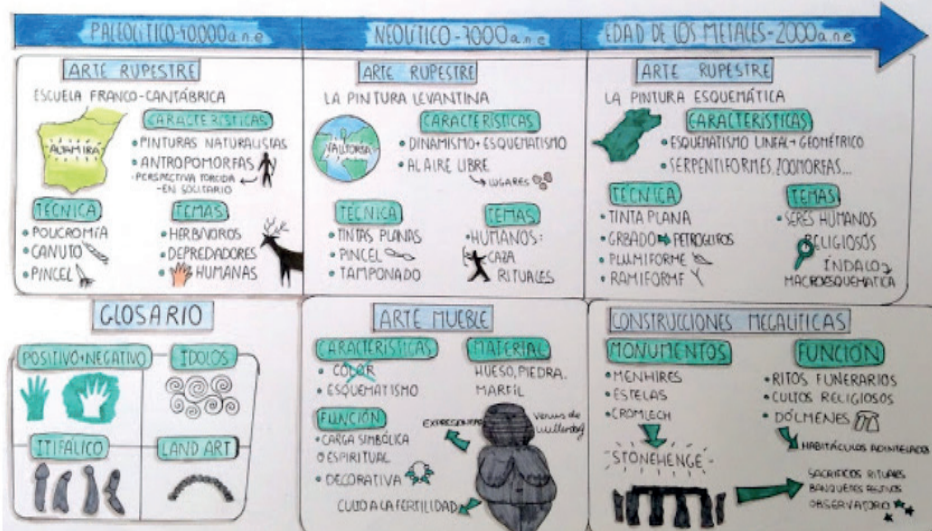 PALEOLÍTICO-40.000a.n.e
NEOLÍTICO-7000a.n.e
EDAD DE LOS METALES-2000a.n.e
ARTE RUPESTRE
ESCUELA FRANCO-CANTÁBRICA
ALTAMIRA
CARACTERÍSTICAS
• PINTURAS NATURALISTAS
• ANTROPOMORFAS
- PERSPECTIVA TORCIDA
- EN SOLITARIO
TÉCNICA
• POLICROMÍA
• CANUTO
• PINCEL
TEMAS
• HERBÍVOROS
• DEPREDADORES
• HUMANAS
ARTE RUPESTRE
LA PINTURA LEVANTINA
VALLTORTA
CARACTERÍSTICAS
• DINAMISMO + ESQUEMATISMO
• AL AIRE LIBRE
LUGARES
TÉCNICA
• TINTAS PLANAS
• PINCEL
• TAMPONADO
TEMAS
• HUMANOS:
CAZA
RITUALES
ARTE RUPESTRE
LA PINTURA ESQUEMÁTICA
CARACTERÍSTICAS
• ESQUEMATISMO LINEAL → GEOMÉTRICO
• SERPENTIFORMES, ZOOMORFAS...
TÉCNICA
• TINTA PLANA
• GRBADO PETROGLIFOS
• PLUMIFORME
• RAMIFORME
TEMAS
• SERES HUMANOS
RELIGIOSOS
ÍNDALO
MACROESQUEMÁTICA
GLOSARIO
POSITIVO+NEGATIVO
ÍDOLOS
ITIFÁLICO
LAND ART
ARTE MUEBLE
CARACTERÍSTICAS
• COLOR
• ESQUEMATISMO
MATERIAL
HUESO, PIEDRA,
MARFIL
FUNCIÓN
• CARGA SIMBÓLICA
O ESPIRITUAL
• DECORATIVA
CULTO A LA FERTILIDAD
Venus de
CONSTRUCCIONES MEGALÍTICAS
MONUMENTOS
• MENHIRES
• ESTELAS
• CROMLECH
STONEHENGE
FUNCIÓN
• RITOS FUNERARIOS
• CULTOS RELIGIOSOS
• DÓLMENES
HABITÁCULOS ADINTELADOS
SACRIFICIOS RITUALES
BANQUETES FESTIVOS
OBSERVATORIO